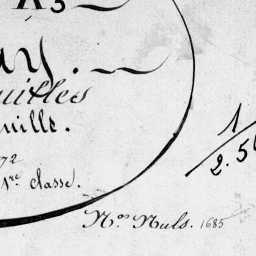 K3
ay.
uilles
uille.
72
1re classe.
1
2.5
Nos Nuls. 1685